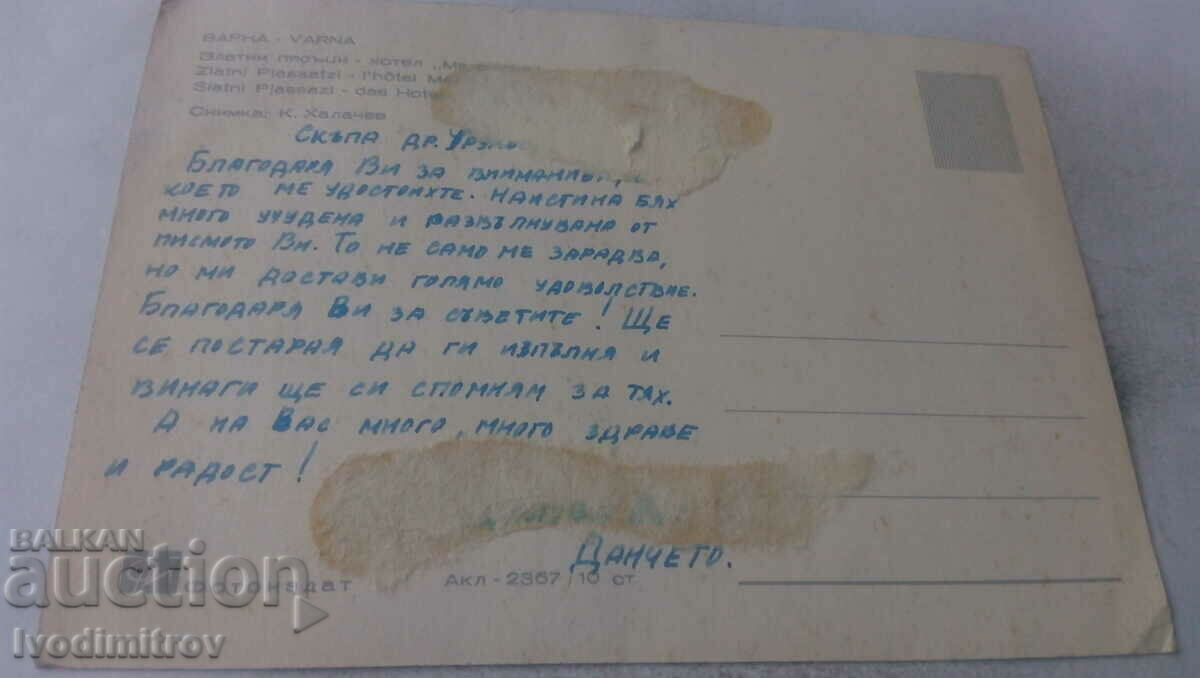 ВАРНА - VARNA
Златни пясъци - хотел „
Zlatni Piassatzi - l'hôtel
Slatni Pjassazi - das Hotel
Снимка: К. Халачев
СКЪПА ДР.
БЛАГОДАРЯ ВИ ЗА ВНИМАНИЕТО,
КОЕТО МЕ УДОСТОИХТЕ. НАИСТИНА БЯХ
МНОГО УЧУДЕНА И РАЗВЪЛНУВАНА ОТ
ПИСМОТО ВИ. ТО НЕ САМО МЕ ЗАРАДВА,
НО МИ ДОСТАВИ ГОЛЯМО УДОВОЛСТВИЕ.
БЛАГОДАРЯ ВИ ЗА СЪВЕТИТЕ! ЩЕ
СЕ ПОСТАРАЯ ДА ГИ ИЗПЪЛНЯ И
ВИНАГИ ЩЕ СИ СПОМНЯМ ЗА ТЯХ.
А НА ВАС МНОГО, МНОГО ЗДРАВЕ
И РАДОСТ!
ДАНЧЕТО.
Фотоиздат Акл - 2367 / 10 ст.
BALKAN
auction
Ivodimitrov